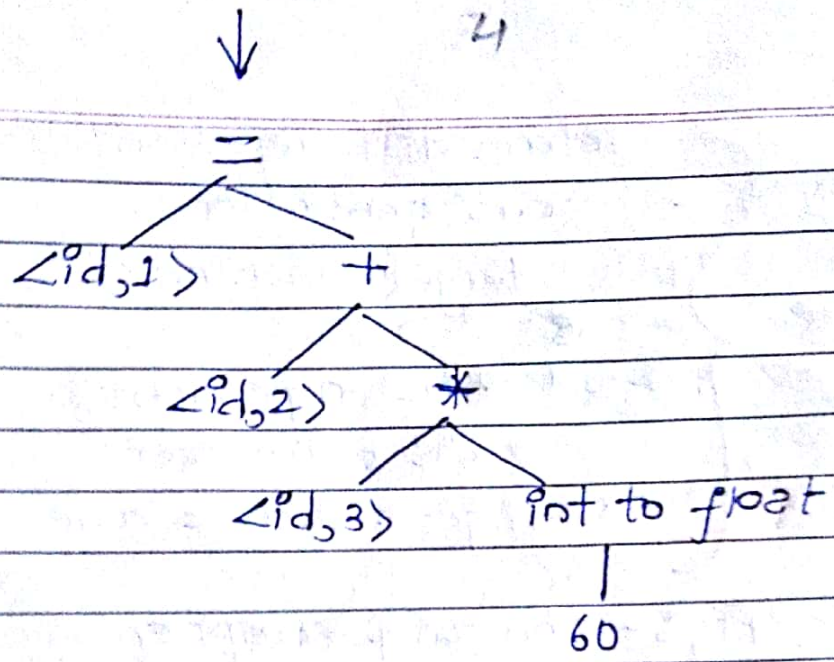 4
=
<id,1> +
<id,2> *
<id,3> int to float
60